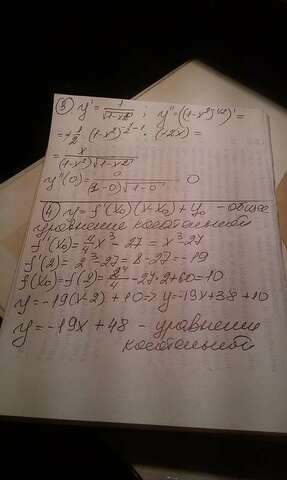 ③ y' = 1/√(1-x²) ; y'' = ((1-x²)^(-1/2))' =
= +1/2 (1-x²)^(-1/2-1) · (-2x) =
= x/((1-x²)√(1-x²))
y''(0) = 0/((1-0)√(1-0)) = 0
④ y = f'(x₀)(x-x₀) + y₀ - общее
уравнение касательной
f'(x₀) = 4/4 x³ - 27 = x³-27
f'(2) = 2³-27 = 8-27 = -19
f(x₀) = f(2) = 2⁴/4 - 27·2+60 = 10
y = -19(x-2) + 10 => y = -19x+38+10
y = -19x + 48 - уравнение
касательной